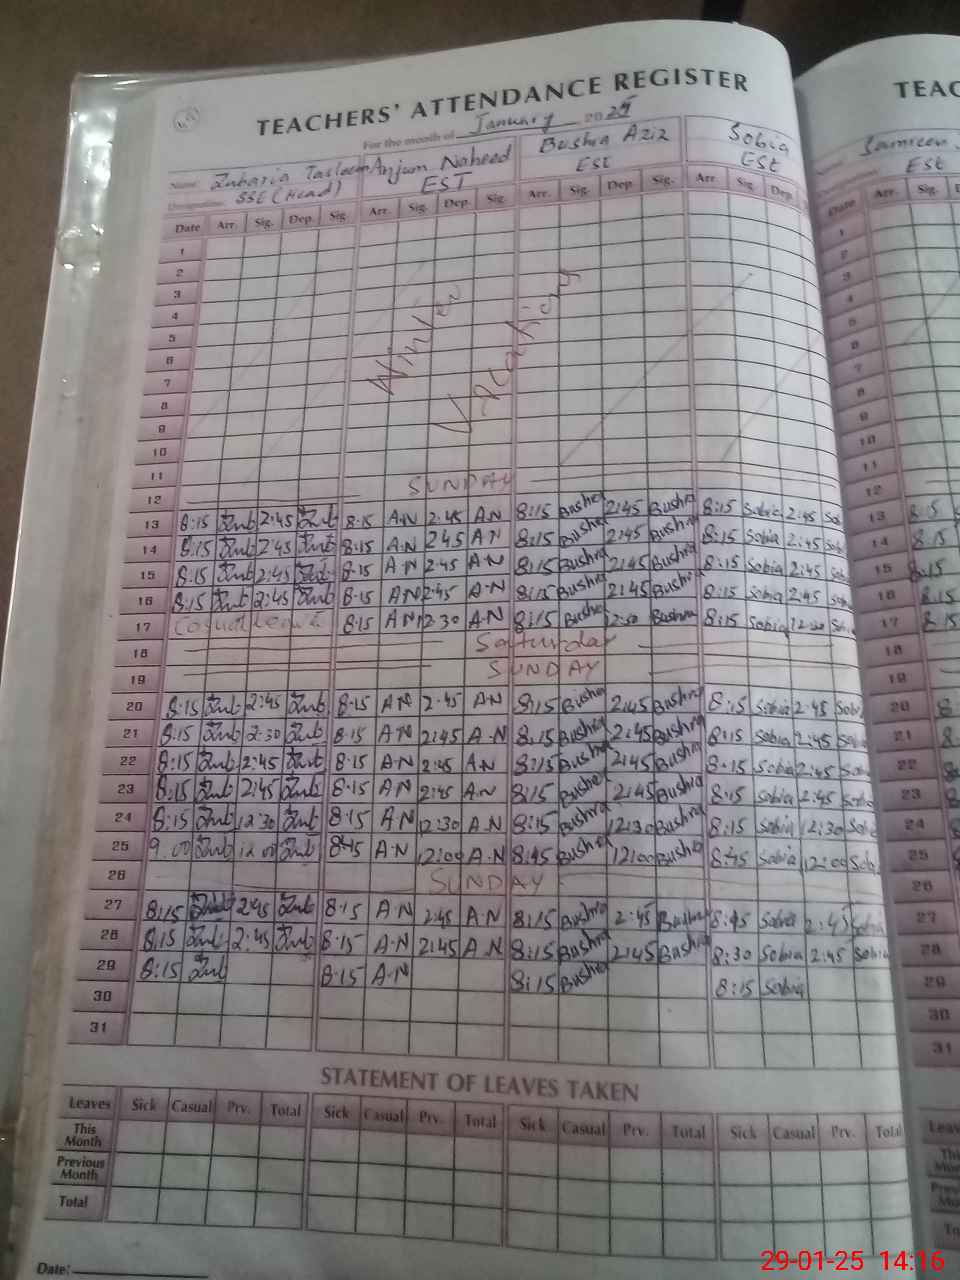 TEACHERS' ATTENDANCE REGISTER
For the month of January 2025
Name: Zubaria Tasleem Anjum Naheed Bushra Aziz Sobia
Designation: SSE (Head) EST EST ESE
Date Arr. Sig. Dep. Sig. Arr. Sig. Dep. Sig. Arr. Sig. Dep. Sig. Arr. Sig. Dep.
1
2
3
4
5
6
7
8
9
10
11
Winter Vacations
12 SUNDAY
13 8:15 Zub 2:45 Zub 8:15 A.N 2:45 A.N 8:15 Bushra 2:45 Bushra 8:15 Sobia 2:45 Sob
14 8:15 Zub 2:45 Zub 8:15 A.N 2:45 A.N 8:15 Bushra 2:45 Bushra 8:15 Sobia 2:45 Sob
15 8:15 Zub 2:45 Zub 8:15 A.N 2:45 A.N 8:15 Bushra 2:45 Bushra 8:15 Sobia 2:45 Sob
16 8:15 Zub 2:45 Zub 8:15 A.N 2:45 A.N 8:15 Bushra 2:45 Bushra 8:15 Sobia 2:45 Sob
17 Casual leave 8:15 A.N 12:30 A.N 8:15 Bushra 12:30 Bushra 8:15 Sobia 12:30 Sob
18 Saturday
19 SUNDAY
20 8:15 Zub 2:45 Zub 8:15 A.N 2:45 A.N 8:15 Bushra 2:45 Bushra 8:15 Sobia 2:45 Sobi
21 8:15 Zub 2:30 Zub 8:15 A.N 2:45 A.N 8:15 Bushra 2:45 Bushra 8:15 Sobia 2:45 Sobi
22 8:15 Zub 2:45 Zub 8:15 A.N 2:45 A.N 8:15 Bushra 2:45 Bushra 8:15 Sobia 2:45 Sobi
23 8:15 Zub 2:45 Zub 8:15 A.N 2:45 A.N 8:15 Bushra 2:45 Bushra 8:15 Sobia 2:45 Sobi
24 8:15 Zub 12:30 Zub 8:15 A.N 12:30 A.N 8:15 Bushra 12:30 Bushra 8:15 Sobia 12:30 Sobi
25 9:00 Zub 12:00 Zub 8:45 A.N 12:00 A.N 8:45 Bushra 12:00 Bushra 8:45 Sobia 12:00 Sobi
26 SUNDAY
27 8:15 Zub 2:45 Zub 8:15 A.N 2:45 A.N 8:15 Bushra 2:45 Bushra 8:45 Sobia 2:45 Sobia
28 8:15 Zub 2:45 Zub 8:15 A.N 2:45 A.N 8:15 Bushra 2:45 Bushra 8:30 Sobia 2:45 Sobia
29 8:15 Zub 8:15 A.N 8:15 Bushra 8:15 Sobia
30
31
STATEMENT OF LEAVES TAKEN
Leaves Sick Casual Prv. Total Sick Casual Prv. Total Sick Casual Prv. Total Sick Casual Prv. Total
This Month
Previous Month
Total
Date:
TEAC
EST
Date Arr. Sig.
1
2
3
4
5
6
7
8
9
10
11
12
13 8:15
14 8:15
15 8:15
16 8:15
17 8:15
18
19
20
21
22
23
24
25
26
27
28
29
30
31
29-01-25 14:16